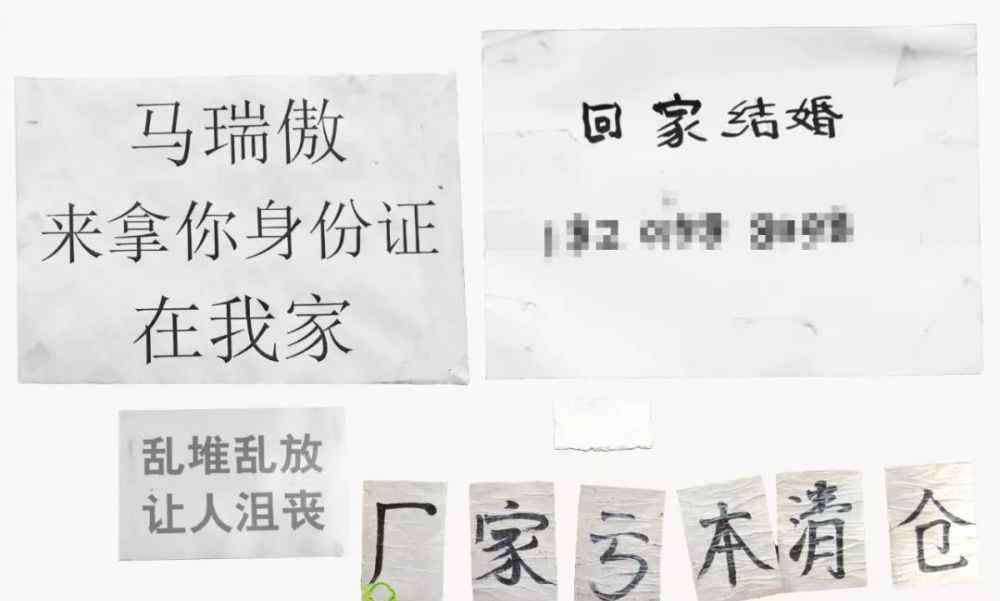 马瑞傲
来拿你身份证
在我家
回家结婚
乱堆乱放
让人沮丧
厂家亏本清仓